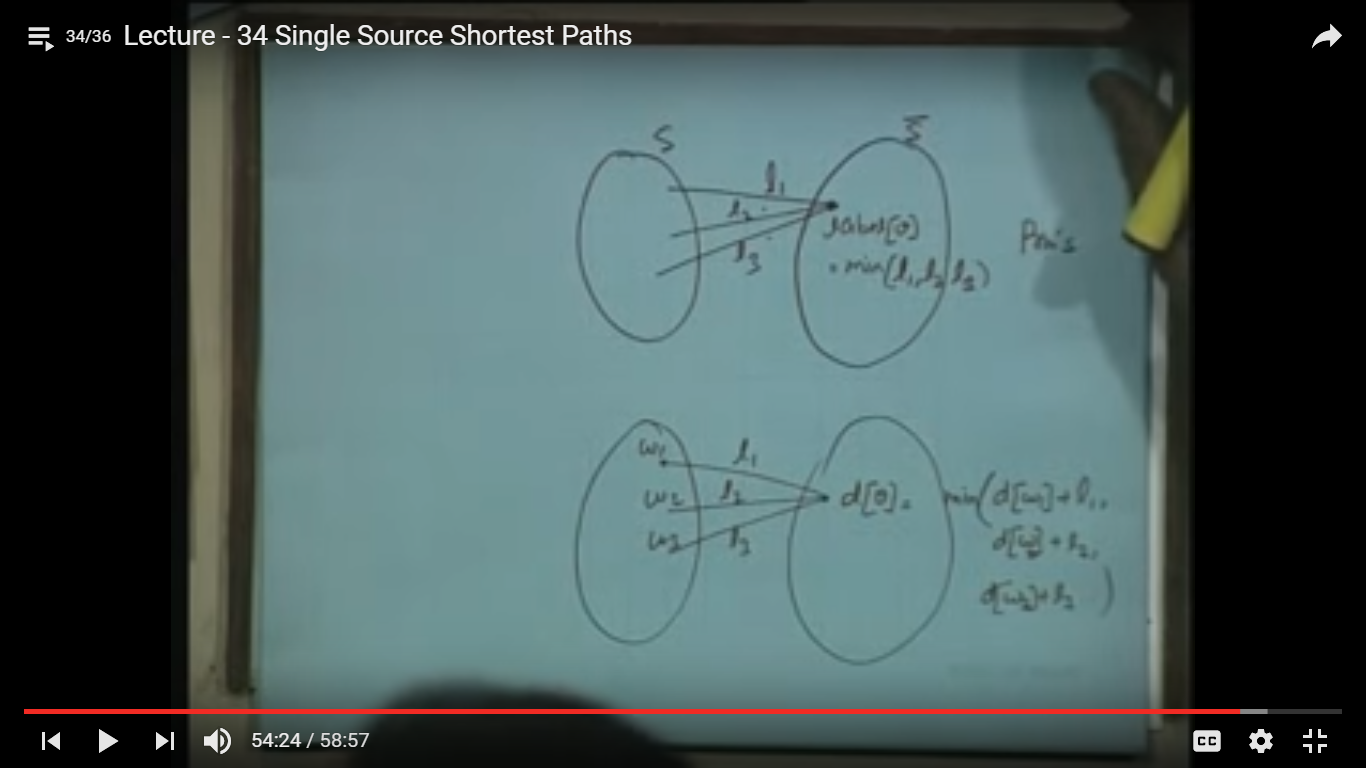 34/36 Lecture - 34 Single Source Shortest Paths
S
S̄
l₁
l₂
l₃
label[v]
= min(l₁, l₂, l₃)
w₁
w₂
w₃
l₁
l₂
l₃
d[v] = min(d[w₁]+l₁,
d[w₂]+l₂,
d[w₃]+l₃)
54:24 / 58:57
CC